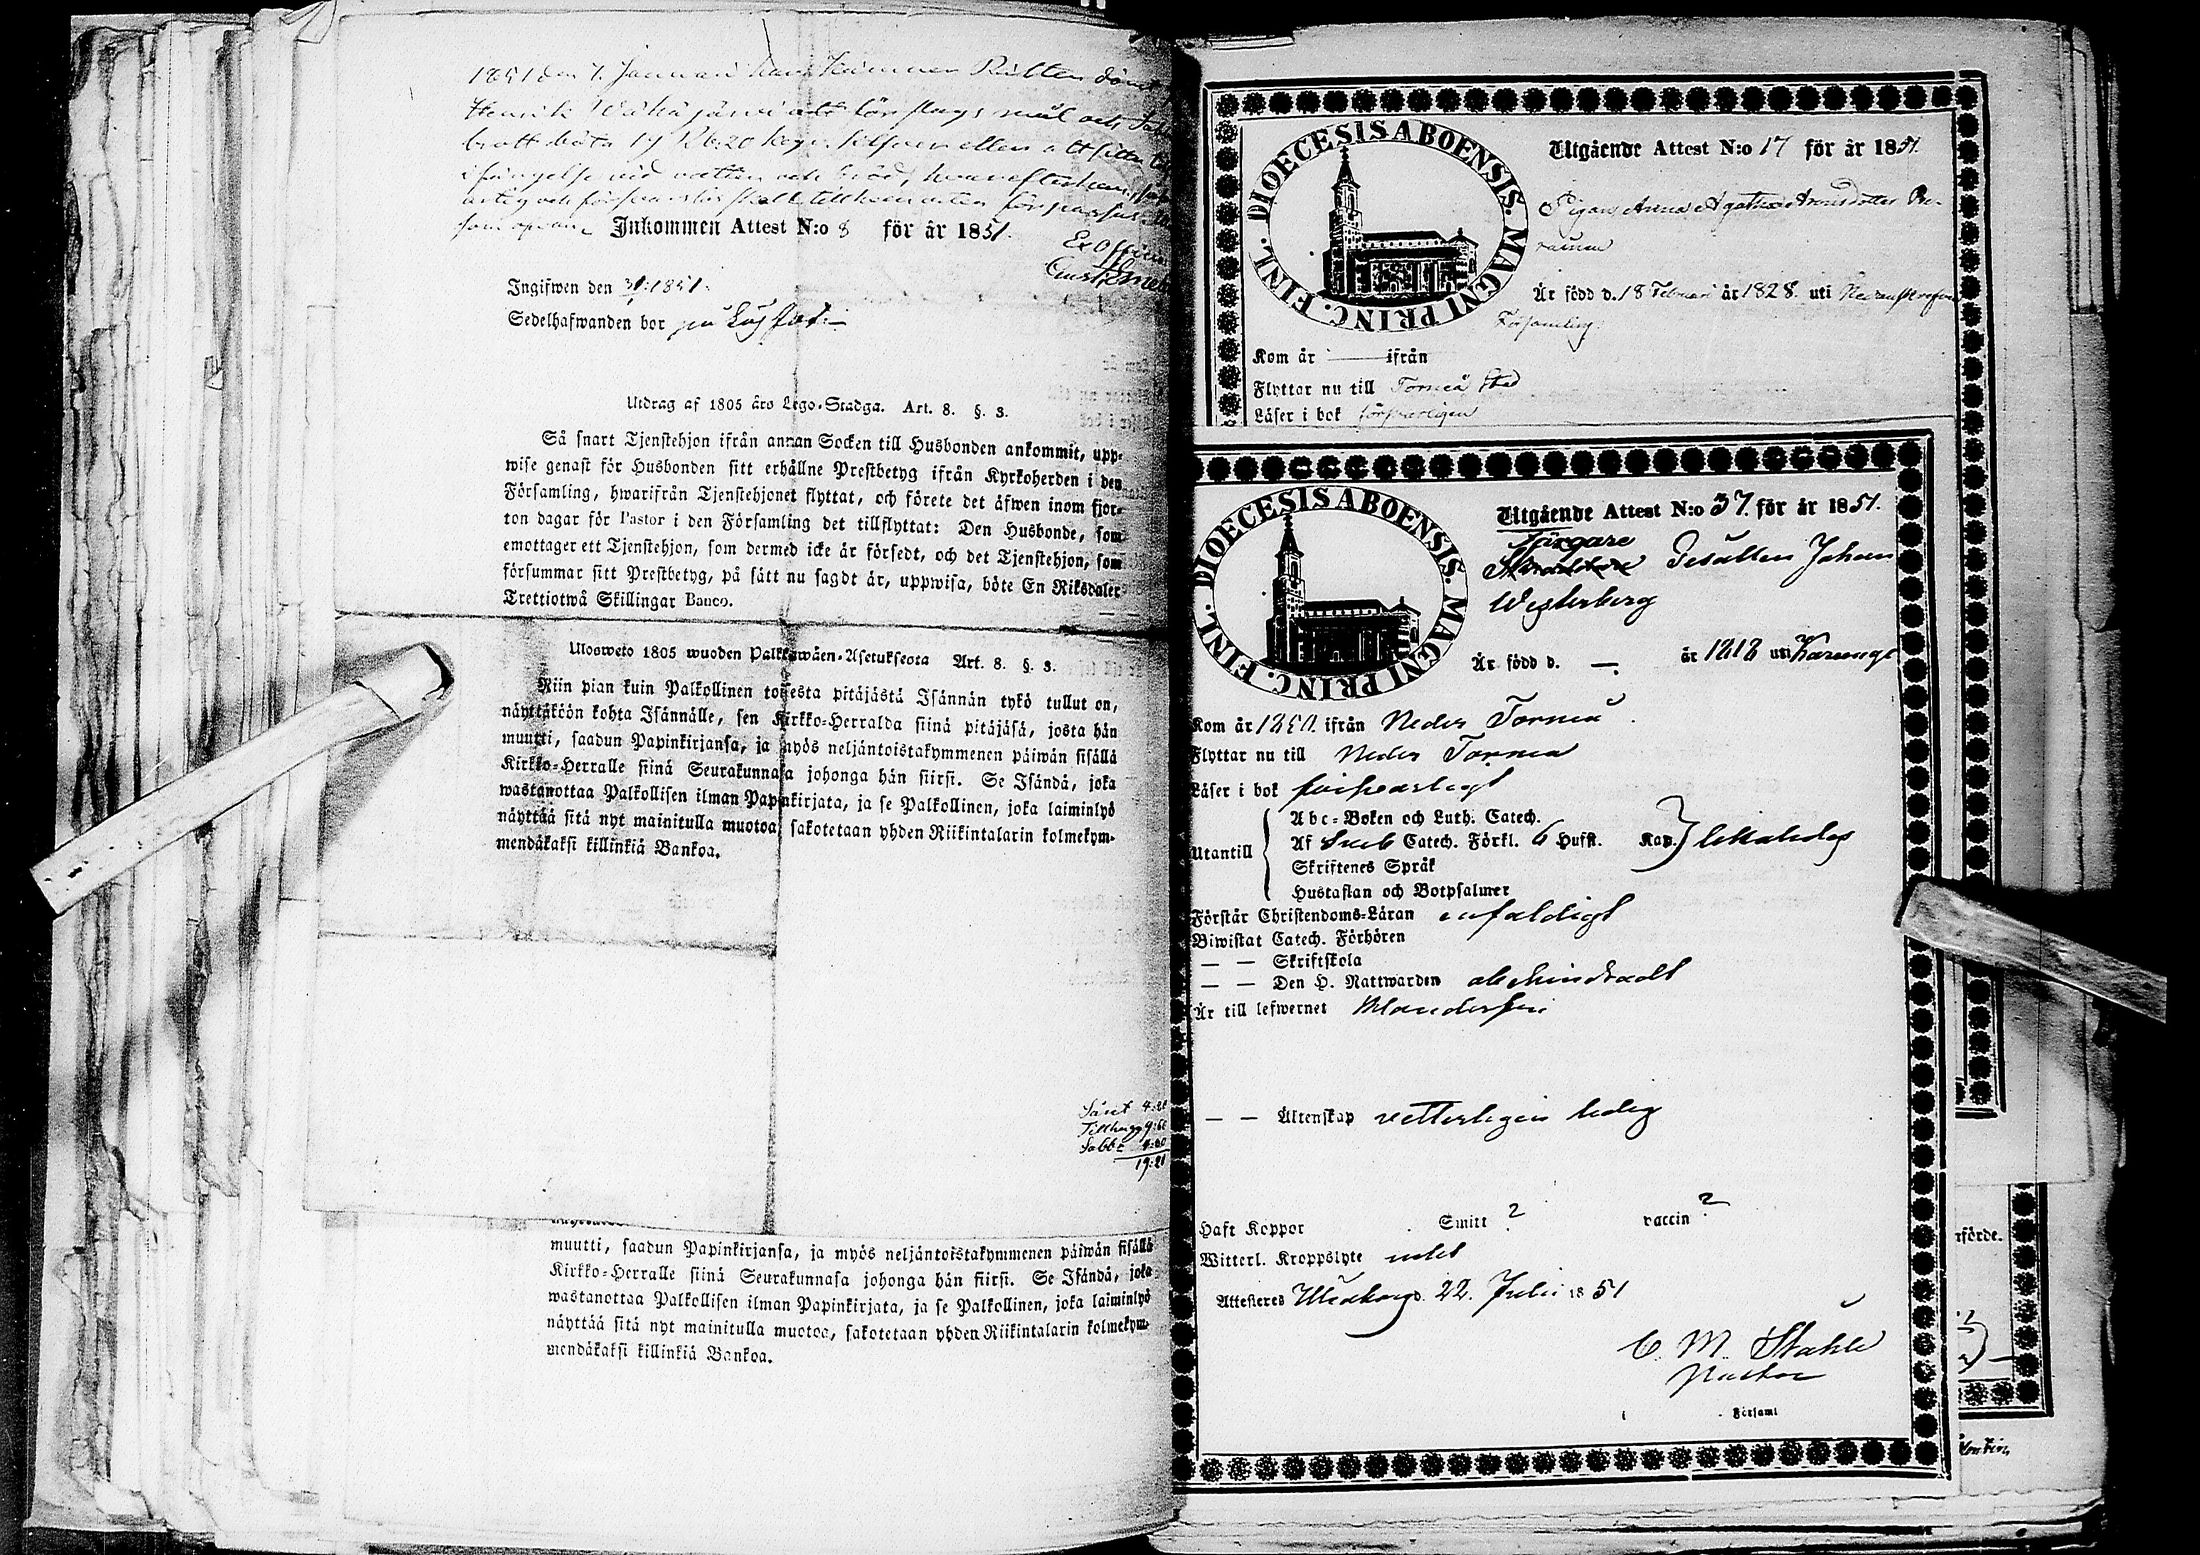 1851 den 7. Januari har Kämners Rätten
Henrik att lönskaps mål och
brott böta 19 Rb: 20 kop. silfver eller att sitta
i fängelse vid vatten och bröd,
skall
Inkommen Attest N:o 8 för år 1851.
Ex Officio
Ingifwen den 31:1851.
Sedelhafwanden bor på
Utdrag af 1805 års Lego-Stadga. Art. 8. §. 3.
Så snart Tjenstehjon ifrån annan Socken till Husbonden ankommit, upp-
wise genast för Husbonden sitt erhållne Prestbetyg ifrån Kyrkoherden i den
Församling, hwarifrån Tjenstehjonet flyttat, och förete det äfwen inom fjor-
ton dagar för Pastor i den Församling det tillflyttat: Den Husbonde, som
emottager ett Tjenstehjon, som dermed icke är försedt, och det Tjenstehjon, som
försummar sitt Prestbetyg, på sätt nu sagdt är, uppwisa, böte En Riksdaler
Trettiotwå Skillingar Banco.
Ulosweto 1805 wuoden Palkkawäen-Asetuksesta Art. 8. §. 3.
Niin pian kuin Palkollinen toisesta pitäjästä Isännän tykö tullut on,
näyttäköön kohta Isännälle, sen Kirkko-Herralda siinä pitäjäsä, josta hän
muutti, saadun Papinkirjansa, ja myös neljäntoistakymmenen päiwän sisällä
Kirkko-Herralle siinä Seurakunnasa johonga hän siirsi. Se Isändä, joka
wastanottaa Palkollisen ilman Papinkirjata, ja se Palkollinen, joka laiminlyö
näyttää sitä nyt mainitulla muotoa, sakotetaan yhden Riikintalarin kolmekym-
mendäkaksi killinkiä Bankoa.
19:21
muutti, saadun Papinkirjansa, ja myös neljäntoistakymmenen päiwän sisällä
Kirkko-Herralle siinä Seurakunnasa johonga hän siirsi. Se Isändä, joka
wastanottaa Palkollisen ilman Papinkirjata, ja se Palkollinen, joka laiminlyö
näyttää sitä nyt mainitulla muotoa, sakotetaan yhden Riikintalarin kolmekym-
mendäkaksi killinkiä Bankoa.
DIOECESIS ABOENSIS. MAGNI PRINC. FINL.
Utgående Attest N:o 17 för år 1851.
Pigan Anna Agatha Aronsdotter
Är född d. 18 Februari år 1828. uti
Församling.
Kom år — ifrån
Flyttar nu till Torneå Stad
Läser i bok försvarligen
DIOECESIS ABOENSIS. MAGNI PRINC. FINL.
Utgående Attest N:o 37 för år 1851.
Färgare
Gesällen Johan
Westerberg
Är född d. — år 1818 uti Karunge
Kom år 1850 ifrån Neder Torneå
Flyttar nu till Neder Torneå
Läser i bok försvarligt
Utantill
Abc-Boken och Luth. Catech.
Af Sveb Catech. Förkl. 6 Hufst. Kap.
Skriftenes Språk
Hustaflan och Botpsalmer
Förstår Christendoms-Läran enfaldigt
Biwistat Catech. Förhören
— — Skriftskola
— — Den H. Nattwarden obehindradt
Är till lefwernet klanderfri
— — Äktenskap vetterligen ledig
Haft Koppor Smitt ? vaccin ?
Witterl. Kroppslyte intet
Attesteres Uleåborg d. 22. Julii 1851
C. M. Stahle
Pastor
i Församl